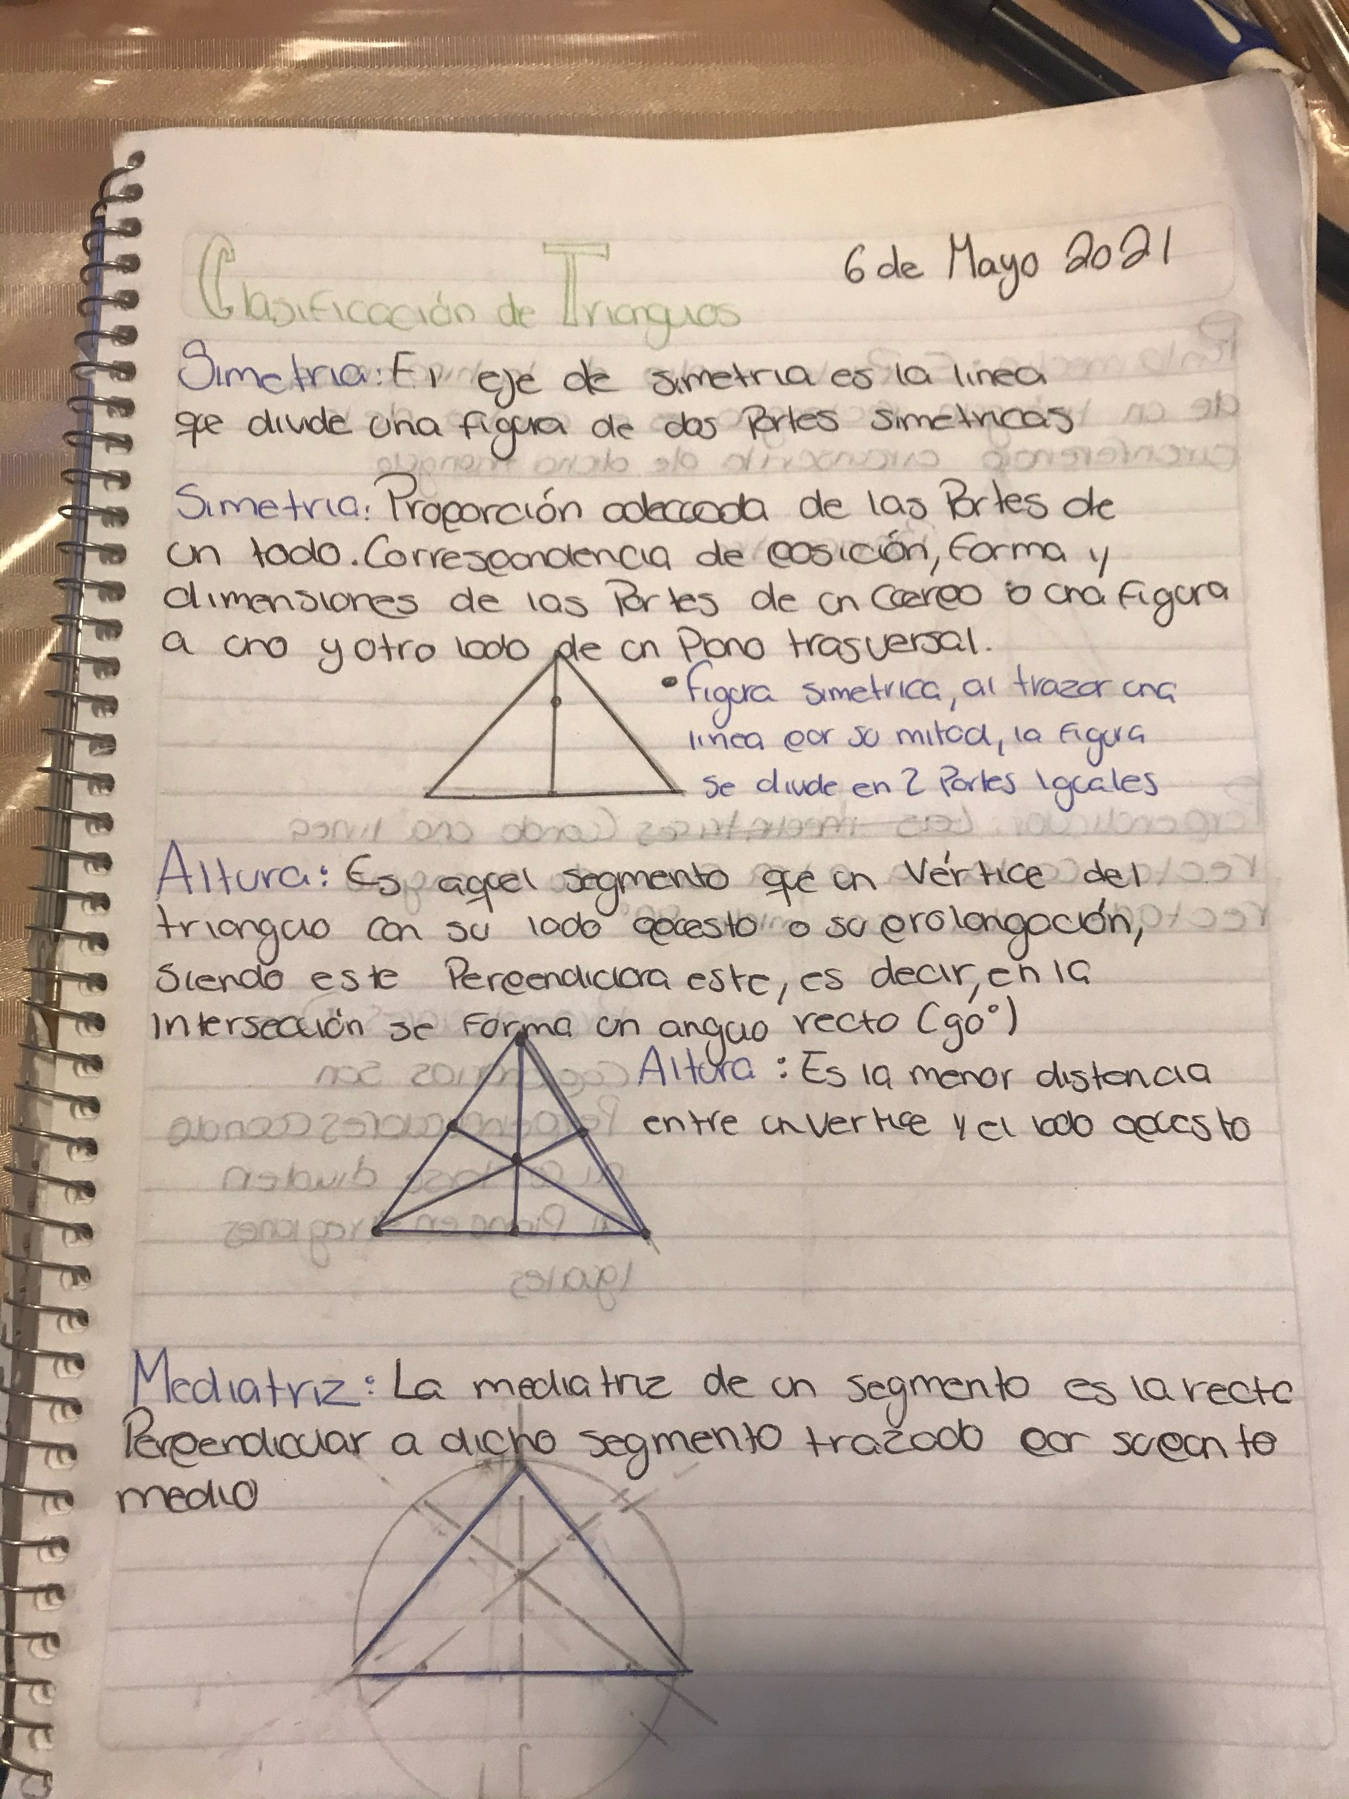 Clasificación de Trianguos
6 de Mayo 2021
Simetria: El eje de simetria es la linea
que divide una figura de dos Partes simetricas
Simetria: Proporción adecuada de las Partes de
un todo. Correspondencia de posición, forma y
dimensiones de las Partes de un Cuerpo o una figura
a uno y otro lado de un Plano trasversal.
• figura simetrica, al trazar una
linea por su mitad, la figura
se divide en 2 Partes iguales
Altura: Es aquel segmento que un Vértice del
trianguo con su lado opuesto o su prolongación,
Siendo este Perpendiclora este, es decir, en la
intersección se forma un anguo recto (90°)
Altura: Es la menor distancia
entre un vertice y el lado opuesto
Mediatriz: La mediatriz de un segmento es la recta
Perpendicular a dicho segmento trazado por su punto
medio